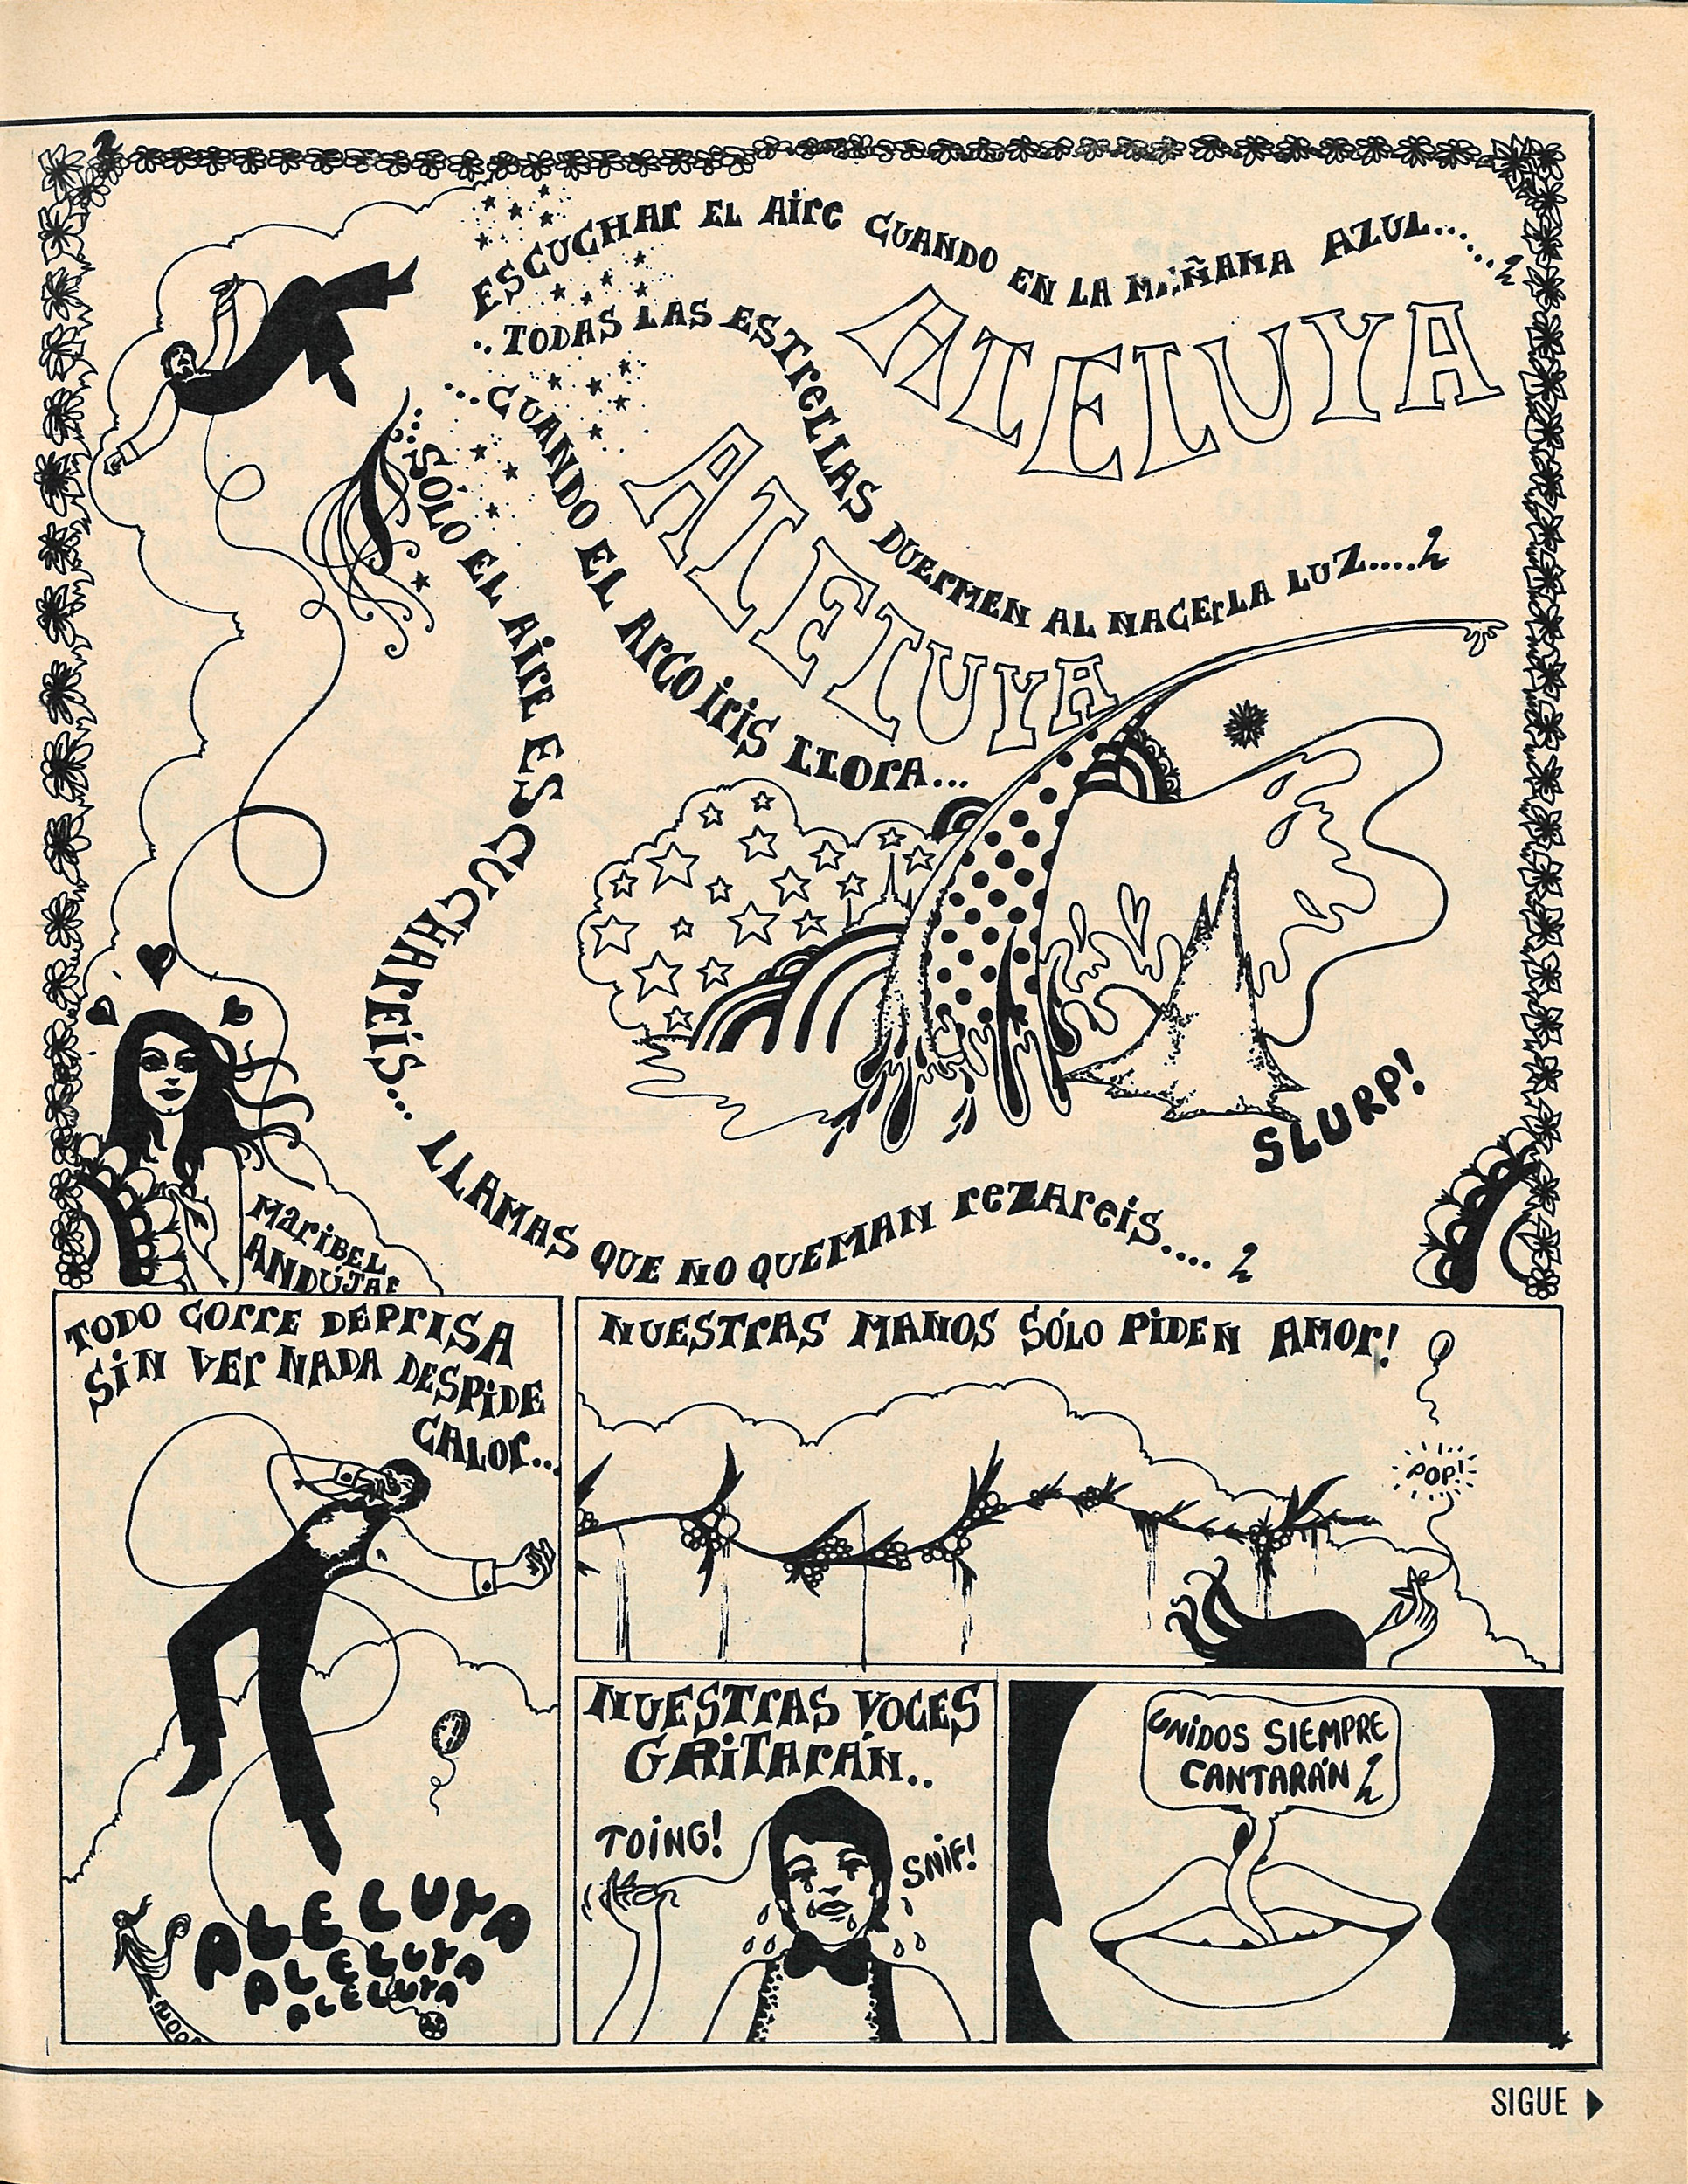 ESCUCHAR EL AIRE CUANDO EN LA MAÑANA AZUL......
ALELUYA
..TODAS LAS ESTRELLAS DUERMEN AL NACER LA LUZ.....
ALELUYA
...CUANDO EL ARCO IRIS LLORA...
...SÓLO EL AIRE ESCUCHAREIS...
SLURP!
LLAMAS QUE NO QUEMAN REZAREIS....
MARIBEL
ANDÚJAR
TODO CORRE DEPRISA
SIN VER NADA DESPIDE
CALOR...
ALELUYA
ALELUYA
ALELUYA
NUESTRAS MANOS SÓLO PIDEN AMOR!
POP!
NUESTRAS VOCES
GRITARÁN..
TOING!
SNIF!
UNIDOS SIEMPRE
CANTARÁN
SIGUE